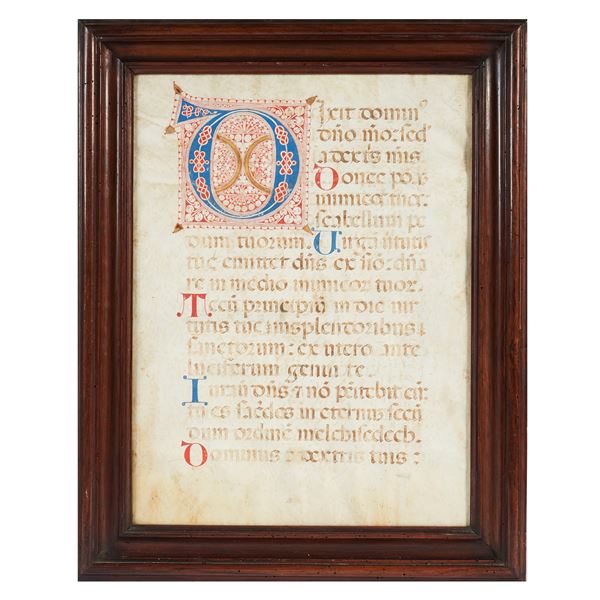 Dixit domin⁹
dño meo sed
a dextris meis
Donec ponā
inimicos tuos
scabellum pe
dum tuorum. Uirgā uirtutis
tue emittet dñs ex sion: dña
re in medio inimicor tuor.
Tecū principiū in die uir
tutis tue in splendoribus
sanctorum: ex utero ante
luciferum genui te
Iurauit dñs & nō penitebit eū:
tu es sacerdos in eternū secū
dum ordinē melchisedech.
Dominus a dextris tuis: